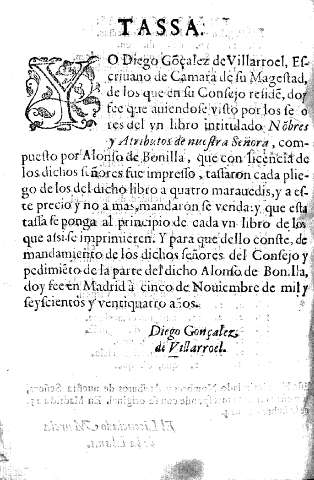 TASSA.
YO Diego Gõçalez de Villarroel, Es-
criuano de Camara de su Magestad,
de los que en su Consejo residē, doy
fee que auiendose visto por los señores
del vn libro intitulado Nõbres
y Atributos de nuestra Señora, com-
puesto por Alonso de Bonilla, que con licencia de
los dichos señores fue impresso, tassaron cada plie-
go de los del dicho libro a quatro marauedis, y a es-
te precio y no a mas, mandaron se venda: y que esta
tassa se ponga al principio de cada vn libro de los
que assi se imprimieren. Y para que dello conste, de
mandamiento de los dichos señores del Consejo y
pedimiēto de la parte del dicho Alonso de Bonilla,
doy fee en Madrid à cinco de Nouiembre de mil y
seyscientos y ventiquatro años.
Diego Gonçalez
de Villarroel.